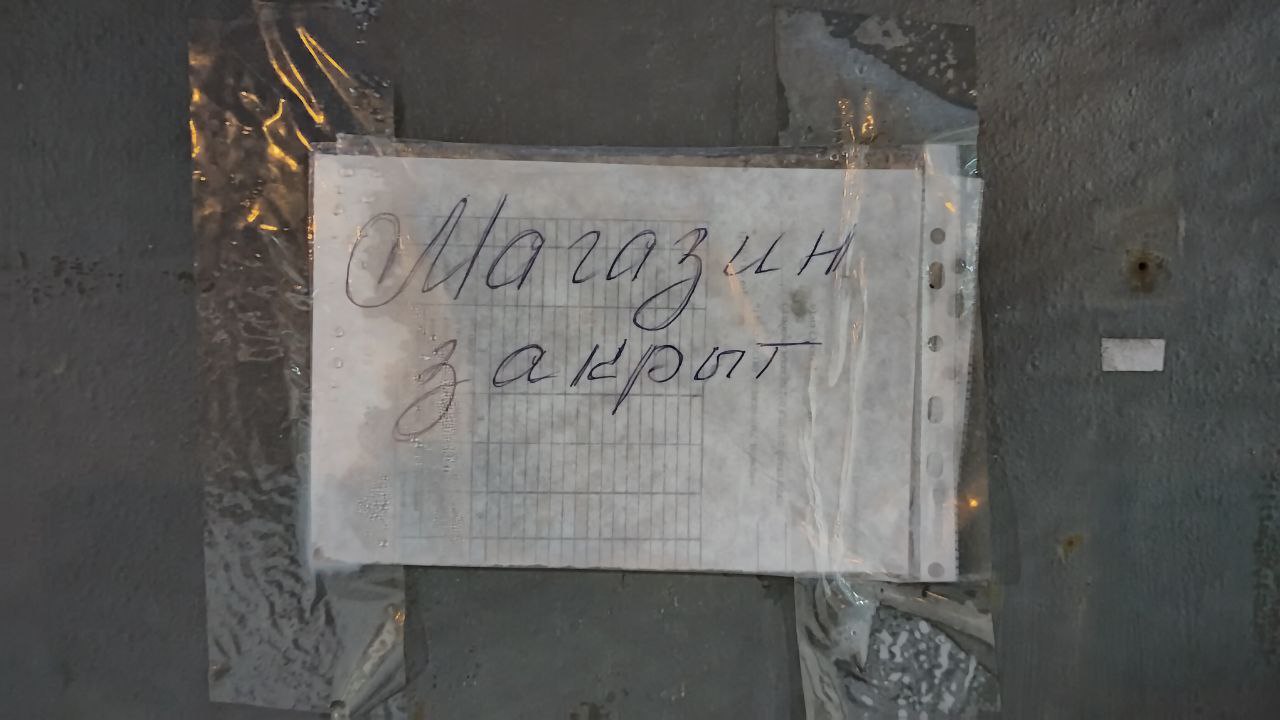 Магазин
закрыт